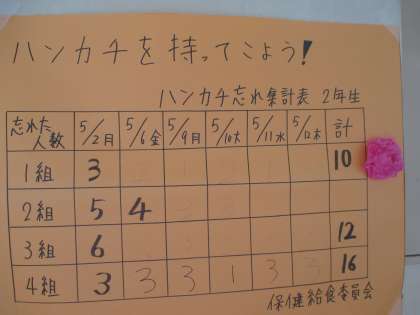 ハンカチを持ってこよう!
ハンカチ忘れ集計表 2年生
忘れた人数 5/2月 5/6金 5/9月 5/10火 5/11水 5/12木 計
1組 3 10
2組 5 4
3組 6 12
4組 3 3 3 1 3 3 16
保健給食委員会